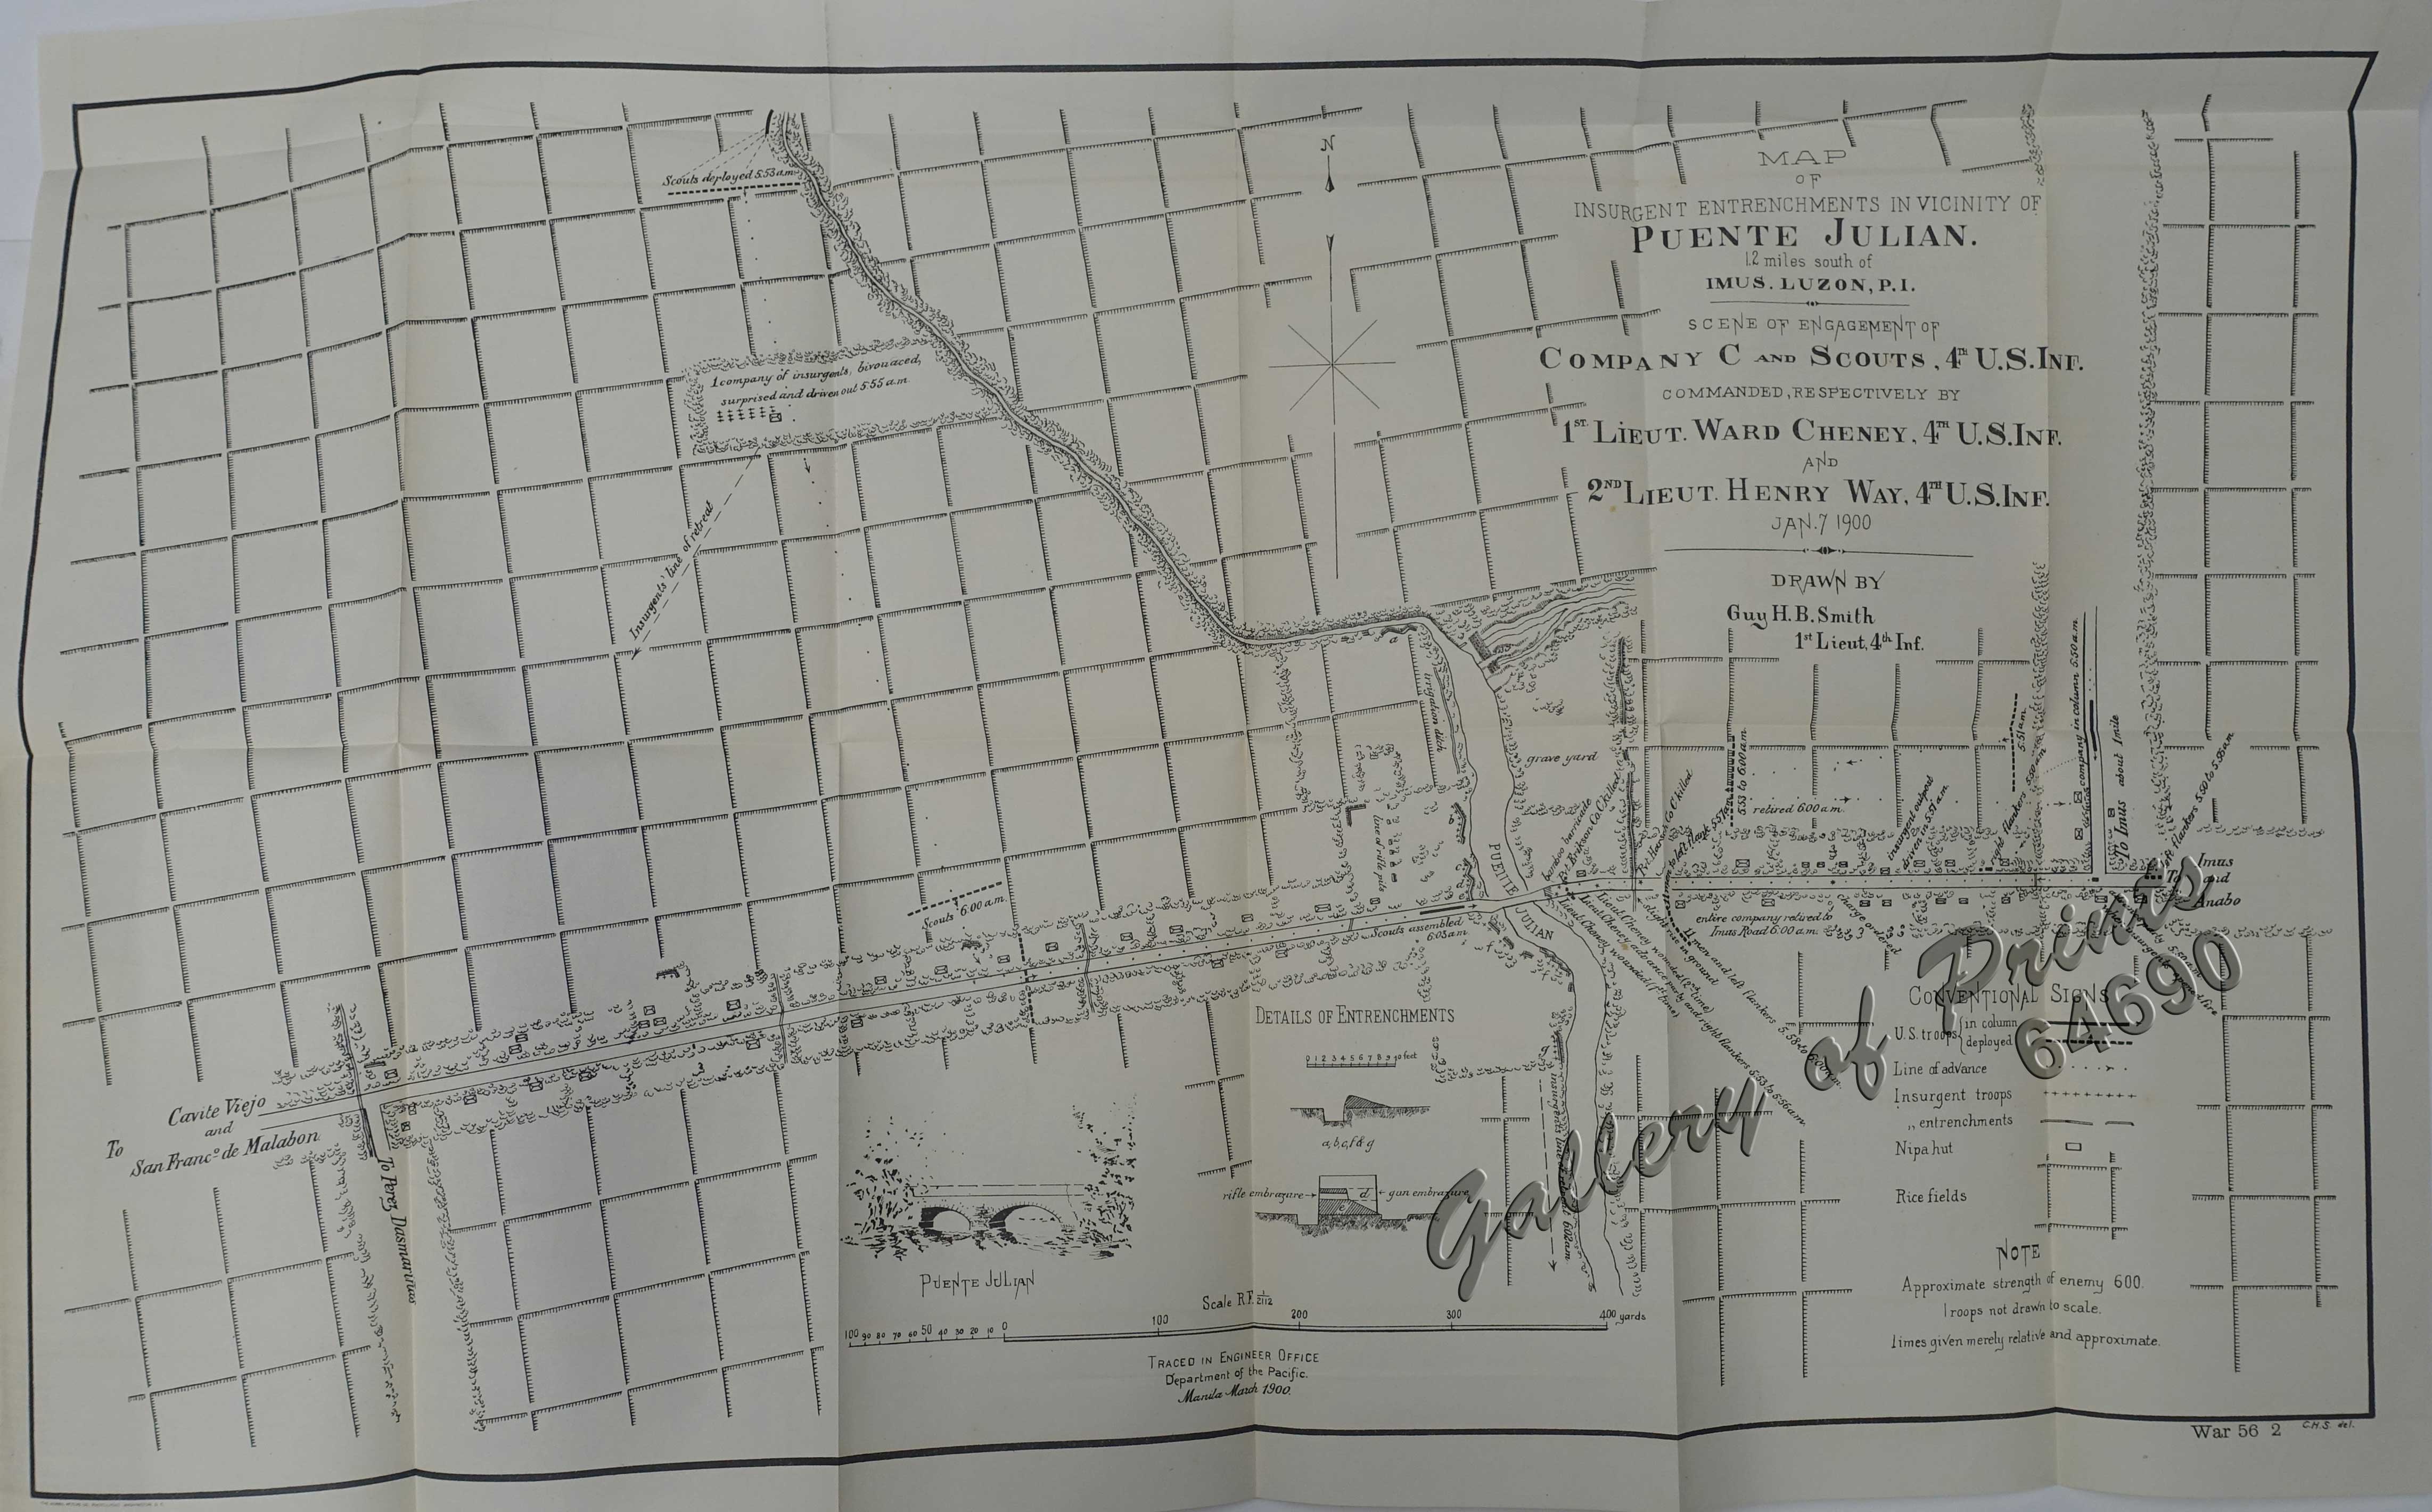 MAP
OF
INSURGENT ENTRENCHMENTS IN VICINITY OF
PUENTE JULIAN.
1.2 miles south of
IMUS. LUZON, P.I.
SCENE OF ENGAGEMENT OF
COMPANY C AND SCOUTS, 4TH U.S. INF.
COMMANDED, RESPECTIVELY BY
1ST LIEUT. WARD CHENEY, 4TH U.S. INF.
AND
2ND LIEUT. HENRY WAY, 4TH U.S. INF.
JAN. 7 1900
DRAWN BY
Guy H. B. Smith
1st Lieut, 4th Inf.
N
Scouts deployed 5:53 a.m.
1 company of insurgents, bivouaced,
surprised and driven out 5:55 a.m.
Insurgents' line of retreat
a
irrigation ditch
grave yard
line of rifle pits
bamboo barricade
5:53 to 6:00 a.m.
retired 6:00 a.m.
insurgent outpost
driven in 5:51 a.m.
5:51 a.m.
company in column 5:50 a.m.
To Imus about 1 mile
left flankers 5:50 to 5:55 a.m.
Imus
To and
Anabo
PUENTE
JULIAN
Scouts 6:00 a.m.
Scouts assembled
6:05 a.m.
entire company retired to
Imus Road 6:00 a.m.
charge ordered
slight rise in ground
11 men and left flankers 5:58 to 6:00 a.m.
Lieut. Cheney wounded (2nd time)
Lieut. Cheney, advance party and right flankers 5:53 to 5:56 a.m.
Lieut. Cheney wounded (1st time)
Cavite Viejo
and
To San Franco. de Malabon
To Perez Dasmarinas
DETAILS OF ENTRENCHMENTS
0 1 2 3 4 5 6 7 8 9 10 feet
a, b, c, f & g
rifle embrazure
d
gun embrazure
e
PUENTE JULIAN
Scale R.F. 1/2112
100 90 80 70 60 50 40 30 20 10 0 100 200 300 400 yards
TRACED IN ENGINEER OFFICE
Department of the Pacific.
Manila March 1900.
CONVENTIONAL SIGNS
U.S. troops { in column
deployed
Line of advance
Insurgent troops
„ entrenchments
Nipa hut
Rice fields
NOTE
Approximate strength of enemy 600.
Troops not drawn to scale.
Times given merely relative and approximate.
War 56 2
C.H.S. del.
Gallery of Prints
64690